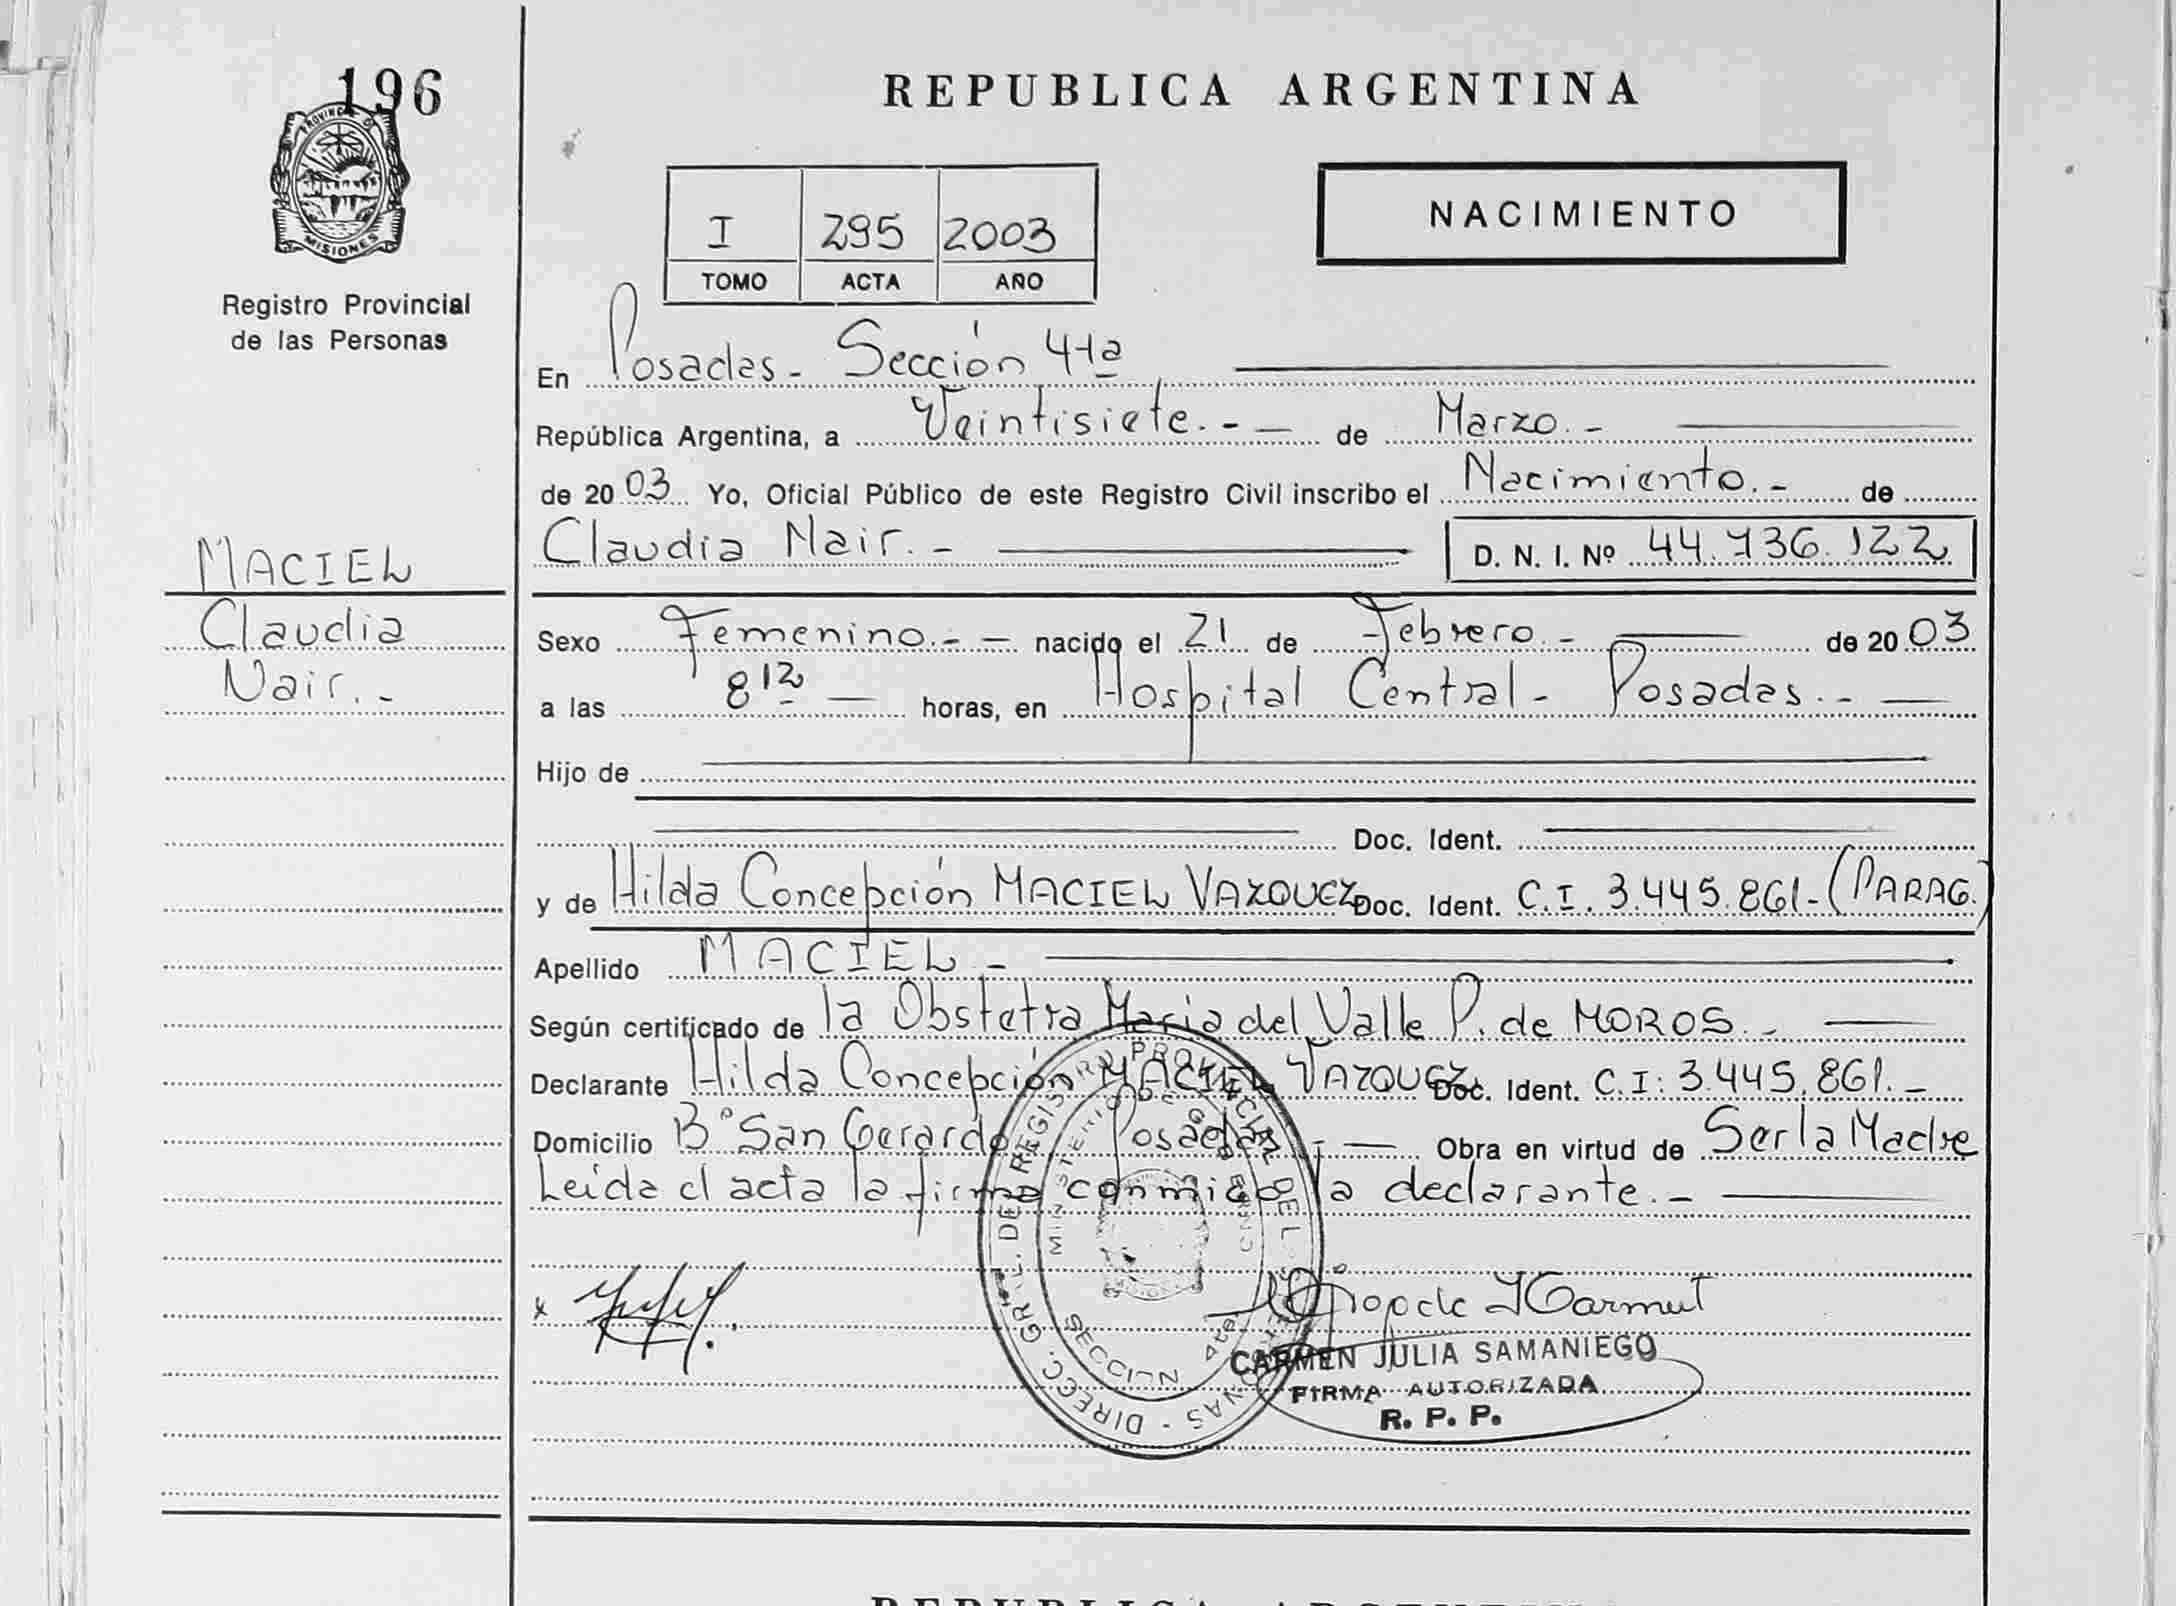 196
PROVINCIA D
MISIONES
Registro Provincial
de las Personas
MACIEL
Claudia
Nair.-
REPUBLICA ARGENTINA
I 295 2003
TOMO ACTA AÑO
NACIMIENTO
En Posadas - Sección 4ta
República Argentina, a Veintisiete.- - de Marzo.-
de 2003 Yo, Oficial Público de este Registro Civil inscribo el Nacimiento.- de
Claudia Nair.- D. N. I. Nº 44.736.122
Sexo Femenino.- - nacido el 21 de Febrero.- de 2003
a las 8 12 - horas, en Hospital Central - Posadas.- -
Hijo de
Doc. Ident.
y de Hilda Concepción MACIEL VAZQUEZ Doc. Ident. C.I. 3.445.861-(PARAG.)
Apellido MACIEL -
Según certificado de la Obstetra María del Valle P. de MOROS.-
Declarante Hilda Concepción MACIEL VAZQUEZ Doc. Ident. C.I: 3.445.861.-
Domicilio Bº San Gerardo Posadas - - Obra en virtud de Ser la Madre
Leída el acta la firma conmigo la declarante.-
x
DIREC. GRAL. DEL REGISTRO PROVINCIAL DE LAS PERSONAS
MINISTERIO DE GOBIERNO
SECCION 4ta
CARMEN JULIA SAMANIEGO
FIRMA AUTORIZADA
R. P. P.
REPUBLICA ARGENTINA